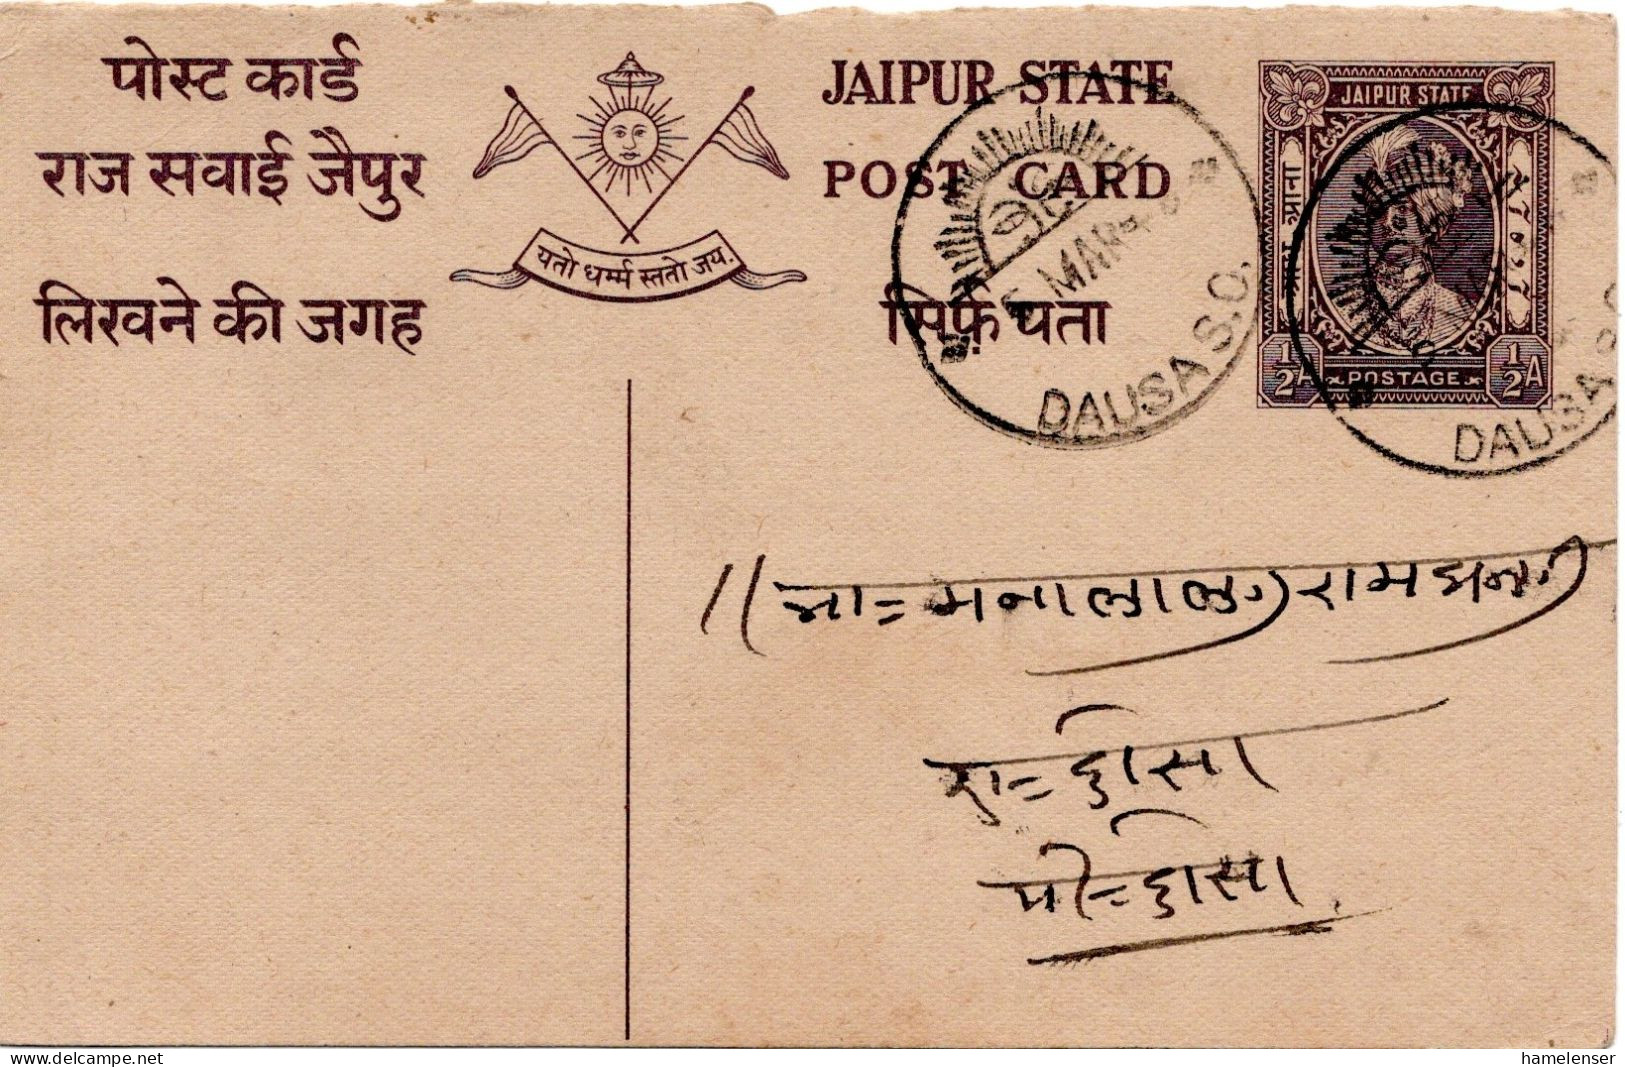 पोस्ट कार्ड
राज सवाई जैपुर
लिखने की जगह
यतो धर्म्म स्ततो जय.
JAIPUR STATE
POST CARD
सिर्फ़ पता
JAIPUR STATE
आध आना
1/2 A POSTAGE 1/2 A
MAR
DAUSA S.O.
DAUSA
मनालाल रामधन
दौसा
दौसा
www.delcampe.net
hamelenser